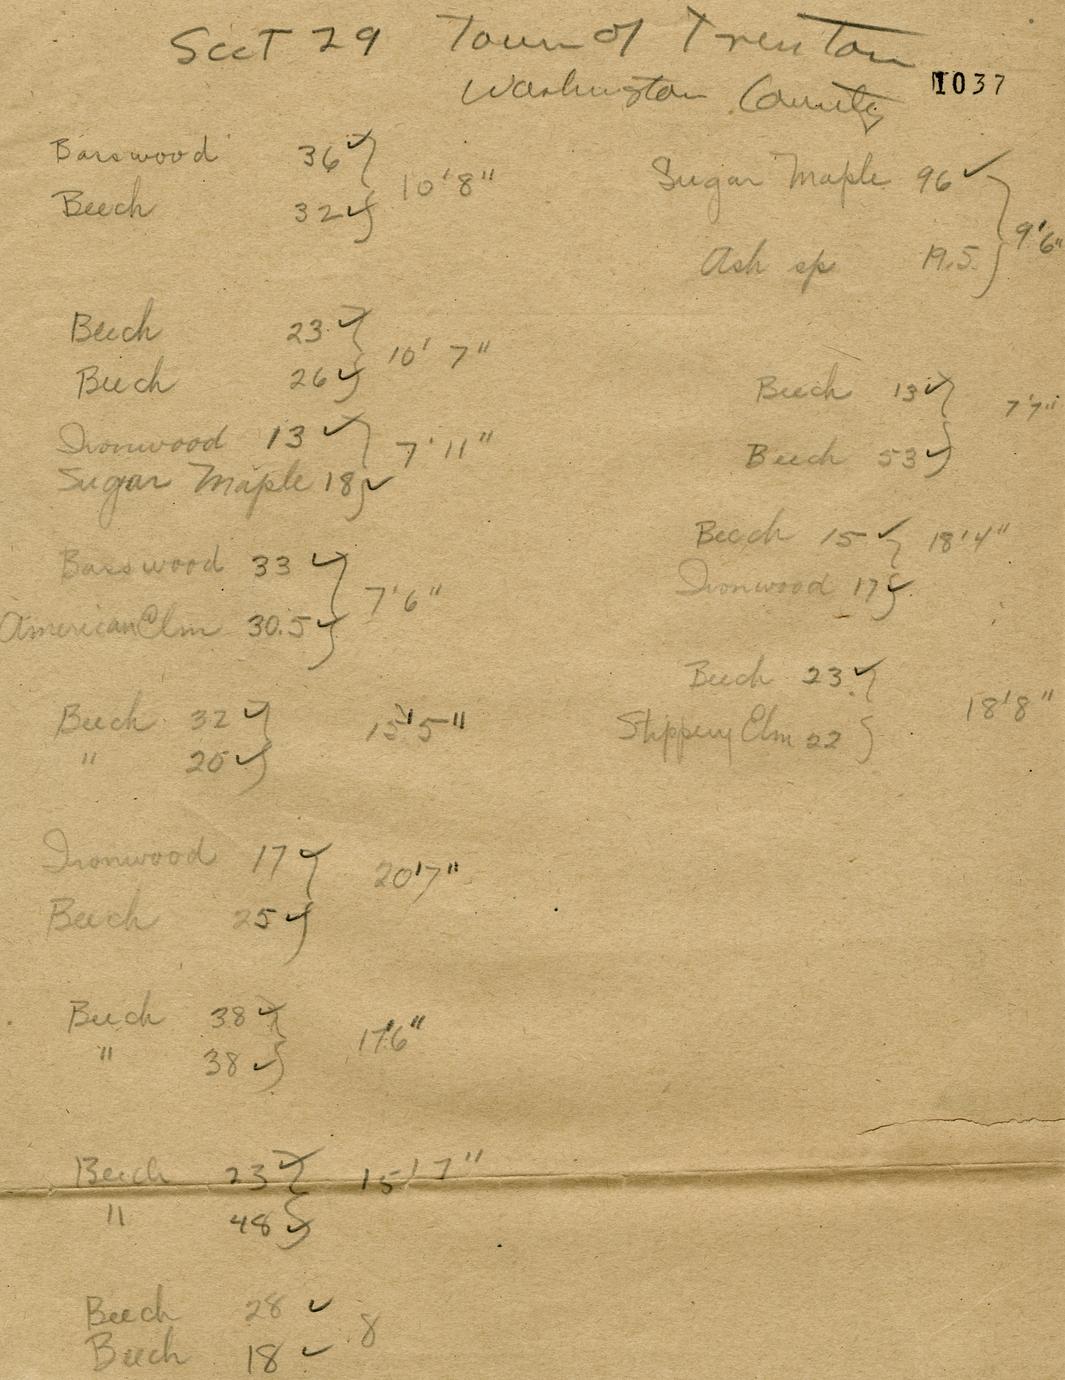 Sect 29 Town of Trenton
Washington County
1037
Basswood 36 ✓
10'8"
Beech 32 ✓
Beech 23 ✓
10' 7"
Beech 26 ✓
Ironwood 13 ✓
7' 11"
Sugar Maple 18 ✓
Basswood 33 ✓
7'6"
American Elm 30.5 ✓
Beech 32 ✓
15'5"
" 20 ✓
Ironwood 17 ✓
20'7"
Beech 25 ✓
Beech 38 ✓
17'6"
" 38 ✓
Beech 23 ✓
15' 7"
" 48 ✓
Beech 28 ✓
8
Beech 18 ✓
Sugar Maple 96 ✓
9'6"
Ash sp 19.5
Beech 13 ✓
7'7"
Beech 53 ✓
Beech 15 ✓ 18'4"
Ironwood 17 ✓
Beech 23 ✓
18'8"
Slippery Elm 22